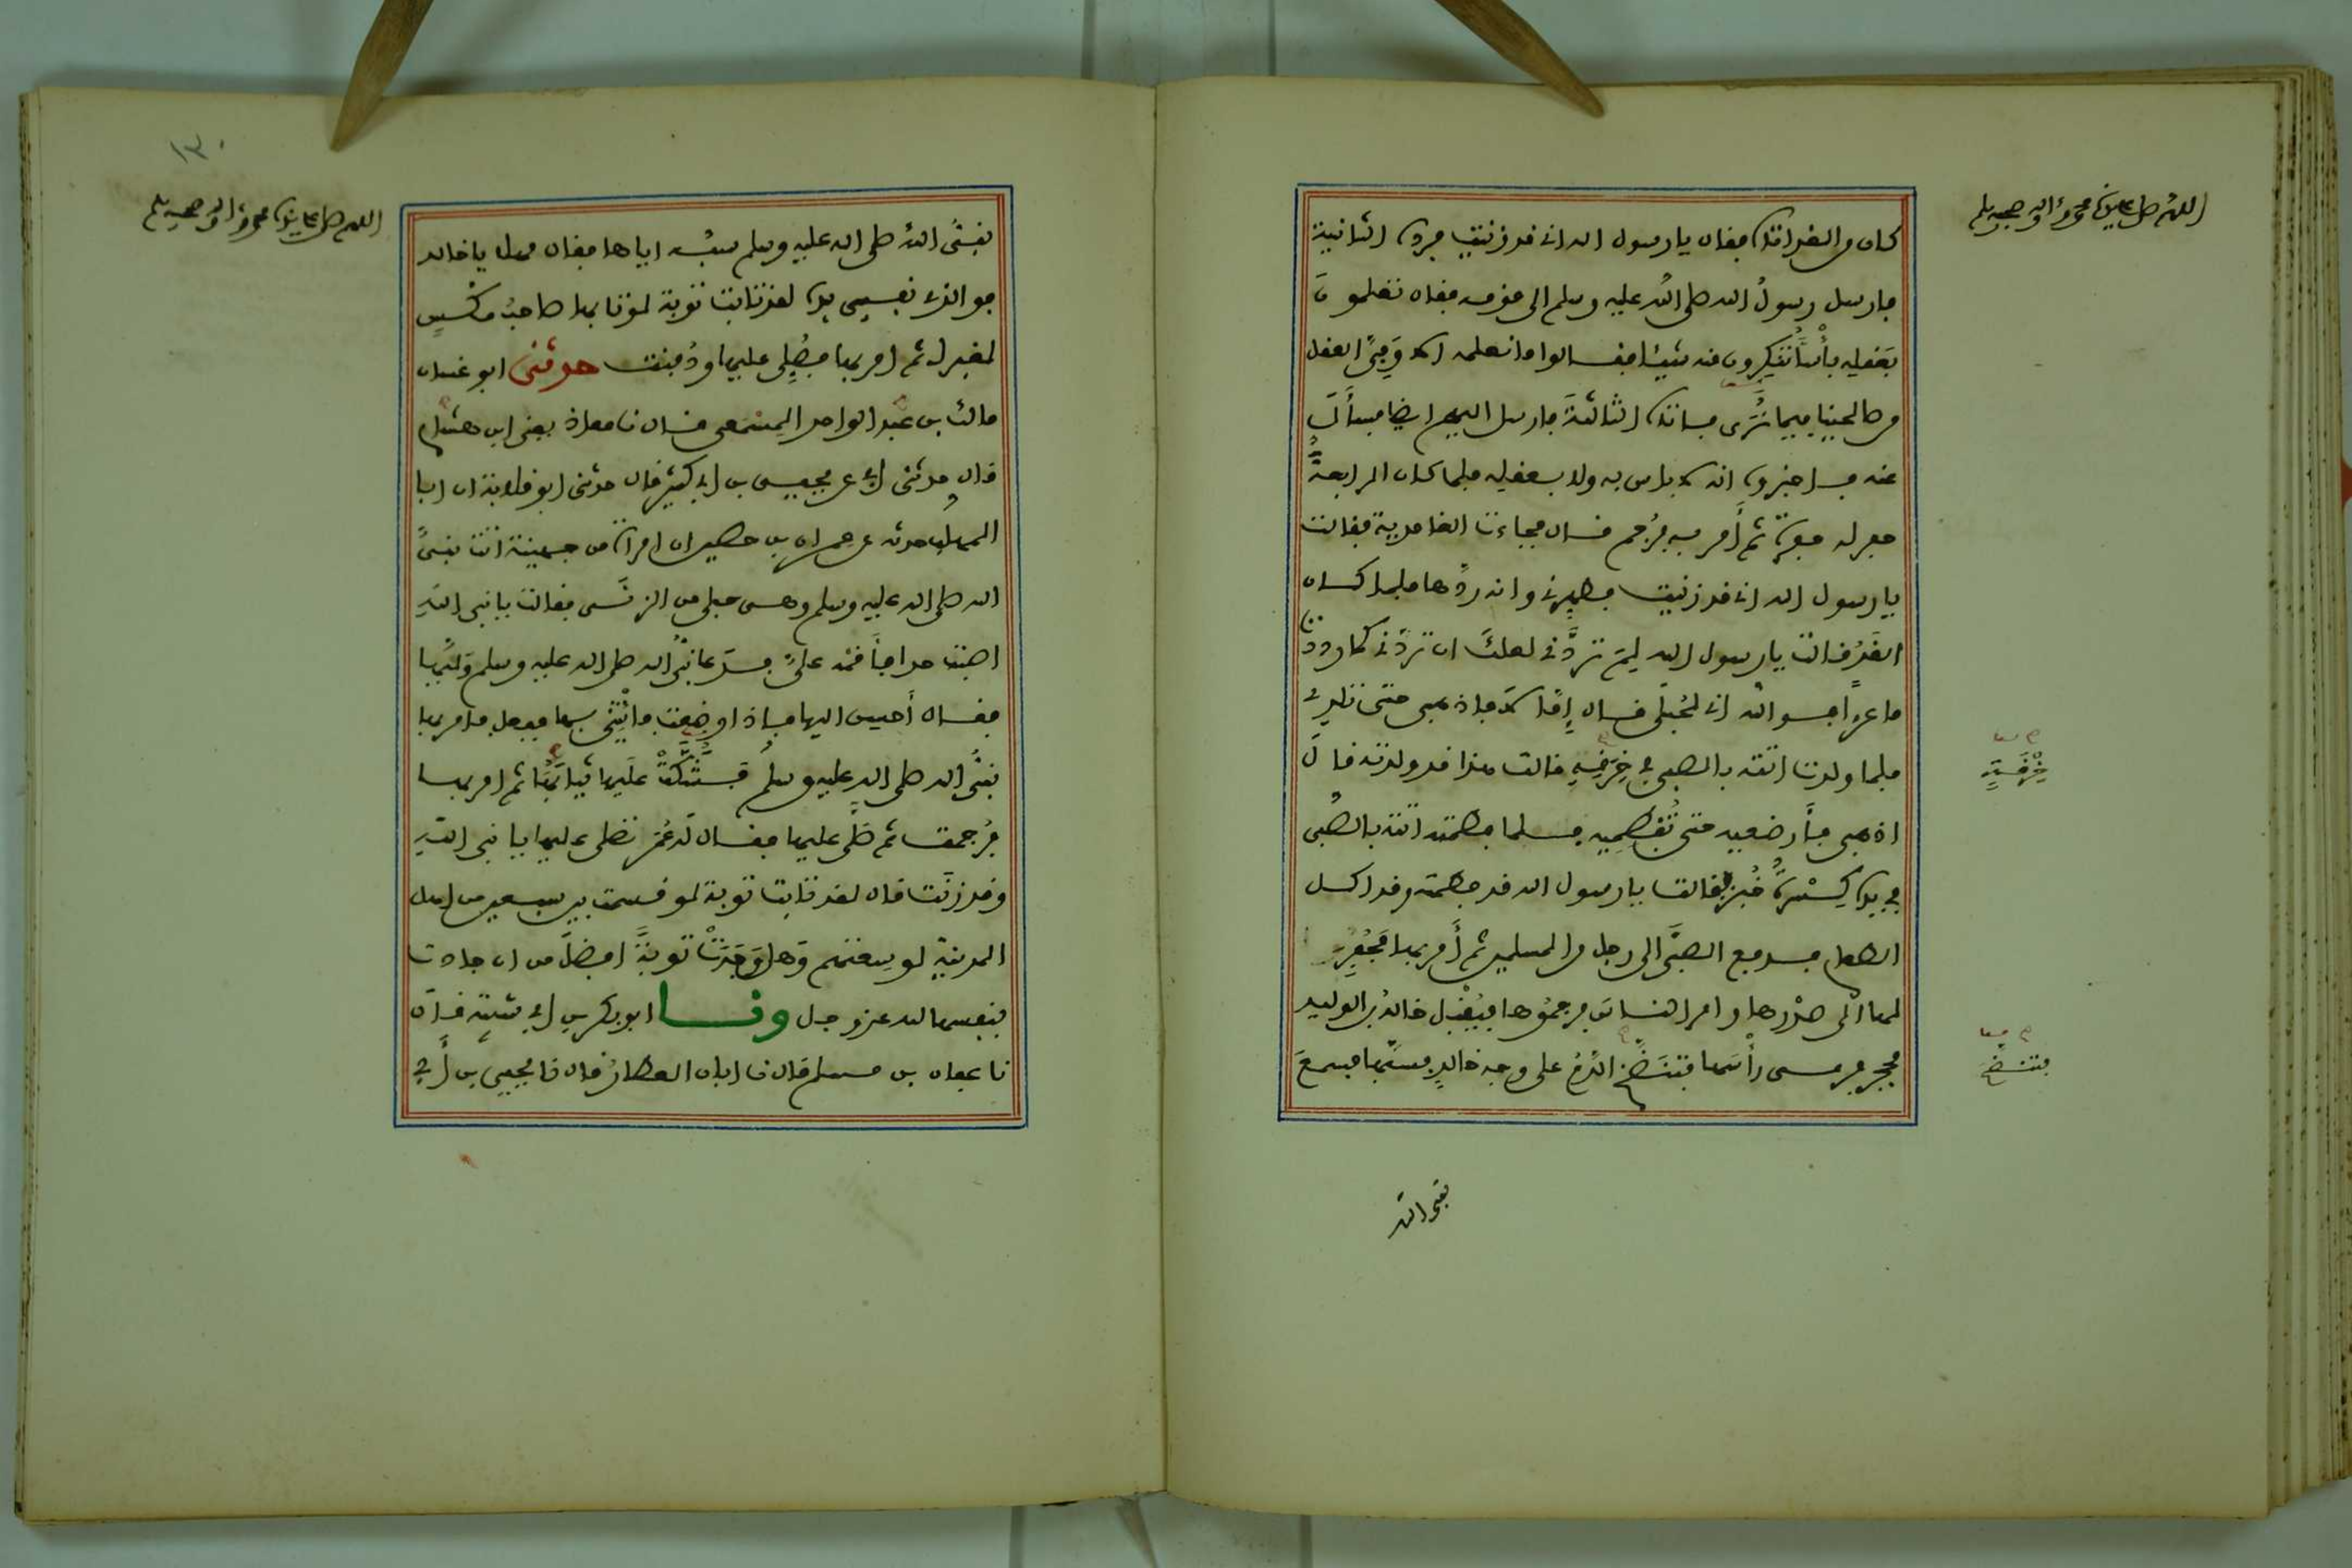 اللهم صل على سيدنا محمد وآله وصحبه وسلم
كان من الغد اتاه فقال يا رسول الله اني قد زنيت فرده الثانية
فارسل رسول الله صلى الله عليه وسلم الى قومه فقال تعلمون
بعقله بأسا تنكرون منه شيئا فقالوا ما نعلمه الا وفيّ العقل
من صالحينا فيما نُرى فاتاه الثالثة فارسل اليهم ايضا فسأل
عنه فاخبروه انه لا باس به ولا بعقله فلما كان الرابعة
حفر له حفرة ثم أمر به فرُجم قال فجاءت الغامدية فقالت
يا رسول الله اني قد زنيت فطهرني وانه ردّها فلما كان
الغد قالت يا رسول الله لِمَ تردّني لعلك ان تردّني كما رددت
ماعزاً فوالله اني لحُبلى قال إمّا لا فاذهبي حتى تلدي
فلما ولدت اتته بالصبي في خرقة قالت هذا قد ولدته قال
خِرْقَةٍ
اذهبي فأرضعيه حتى تُفطميه فلما فطمته اتته بالصبي
في يده كِسْرة خُبز فقالت يا رسول الله قد فطمته وقد اكل
الطعام فدفع الصبيّ الى رجل من المسلمين ثم أمر بها فحُفِر
لها الى صدرها وامر الناس فرجموها فيُقبل خالد بن الوليد
بحجر فرمى رأسها فتنضّخ الدّم على وجه خالد فسبّها فسمع
فتنضخ
نبي الله
١٣٠
اللهم صل على سيدنا محمد وآله وصحبه وسلم
نبيّ الله صلى الله عليه وسلم سبّه اياها فقال مهلا يا خالد
فوالذي نفسي بيده لقد تابت توبة لو تابها صاحبُ مكْسٍ
لغفر له ثم امر بها فصُلّي عليها ودُفنت حدثني ابو غسان
مالك بن عبد الواحد المِسْمَعي قال نا معاذ يعني ابن هشام
قال حدثني ابي عن يحيى بن ابي كثير قال حدثني ابو قلابة ان ابا
المهلب حدثه عن عمران بن حصين ان امراة من جهينة اتت نبيّ
الله صلى الله عليه وسلم وهي حبلى من الزنى فقالت يا نبي الله
اصبتُ حدا فأقمه عليّ فدعا نبيّ الله صلى الله عليه وسلم وليّها
فقال أحسن اليها فاذا وضعت فأتني بها ففعل فامر بها
نبيّ الله صلى الله عليه وسلم فشُكّت عليها ثيابُها ثم امر بها
فرُجمت ثم صلّى عليها فقال له عُمر تصلي عليها يا نبي الله
وقد زنت قال لقد تابت توبة لو قسمت بين سبعين من اهل
المدينة لوسعتهم وهل وَجَدْتَ توبةً افضلَ من ان جادت
بنفسها لله عز وجل ونا ابو بكر بن ابي شيبة قال
نا عفان بن مسلم قال نا ابان العطار قال نا يحيى بن أبي